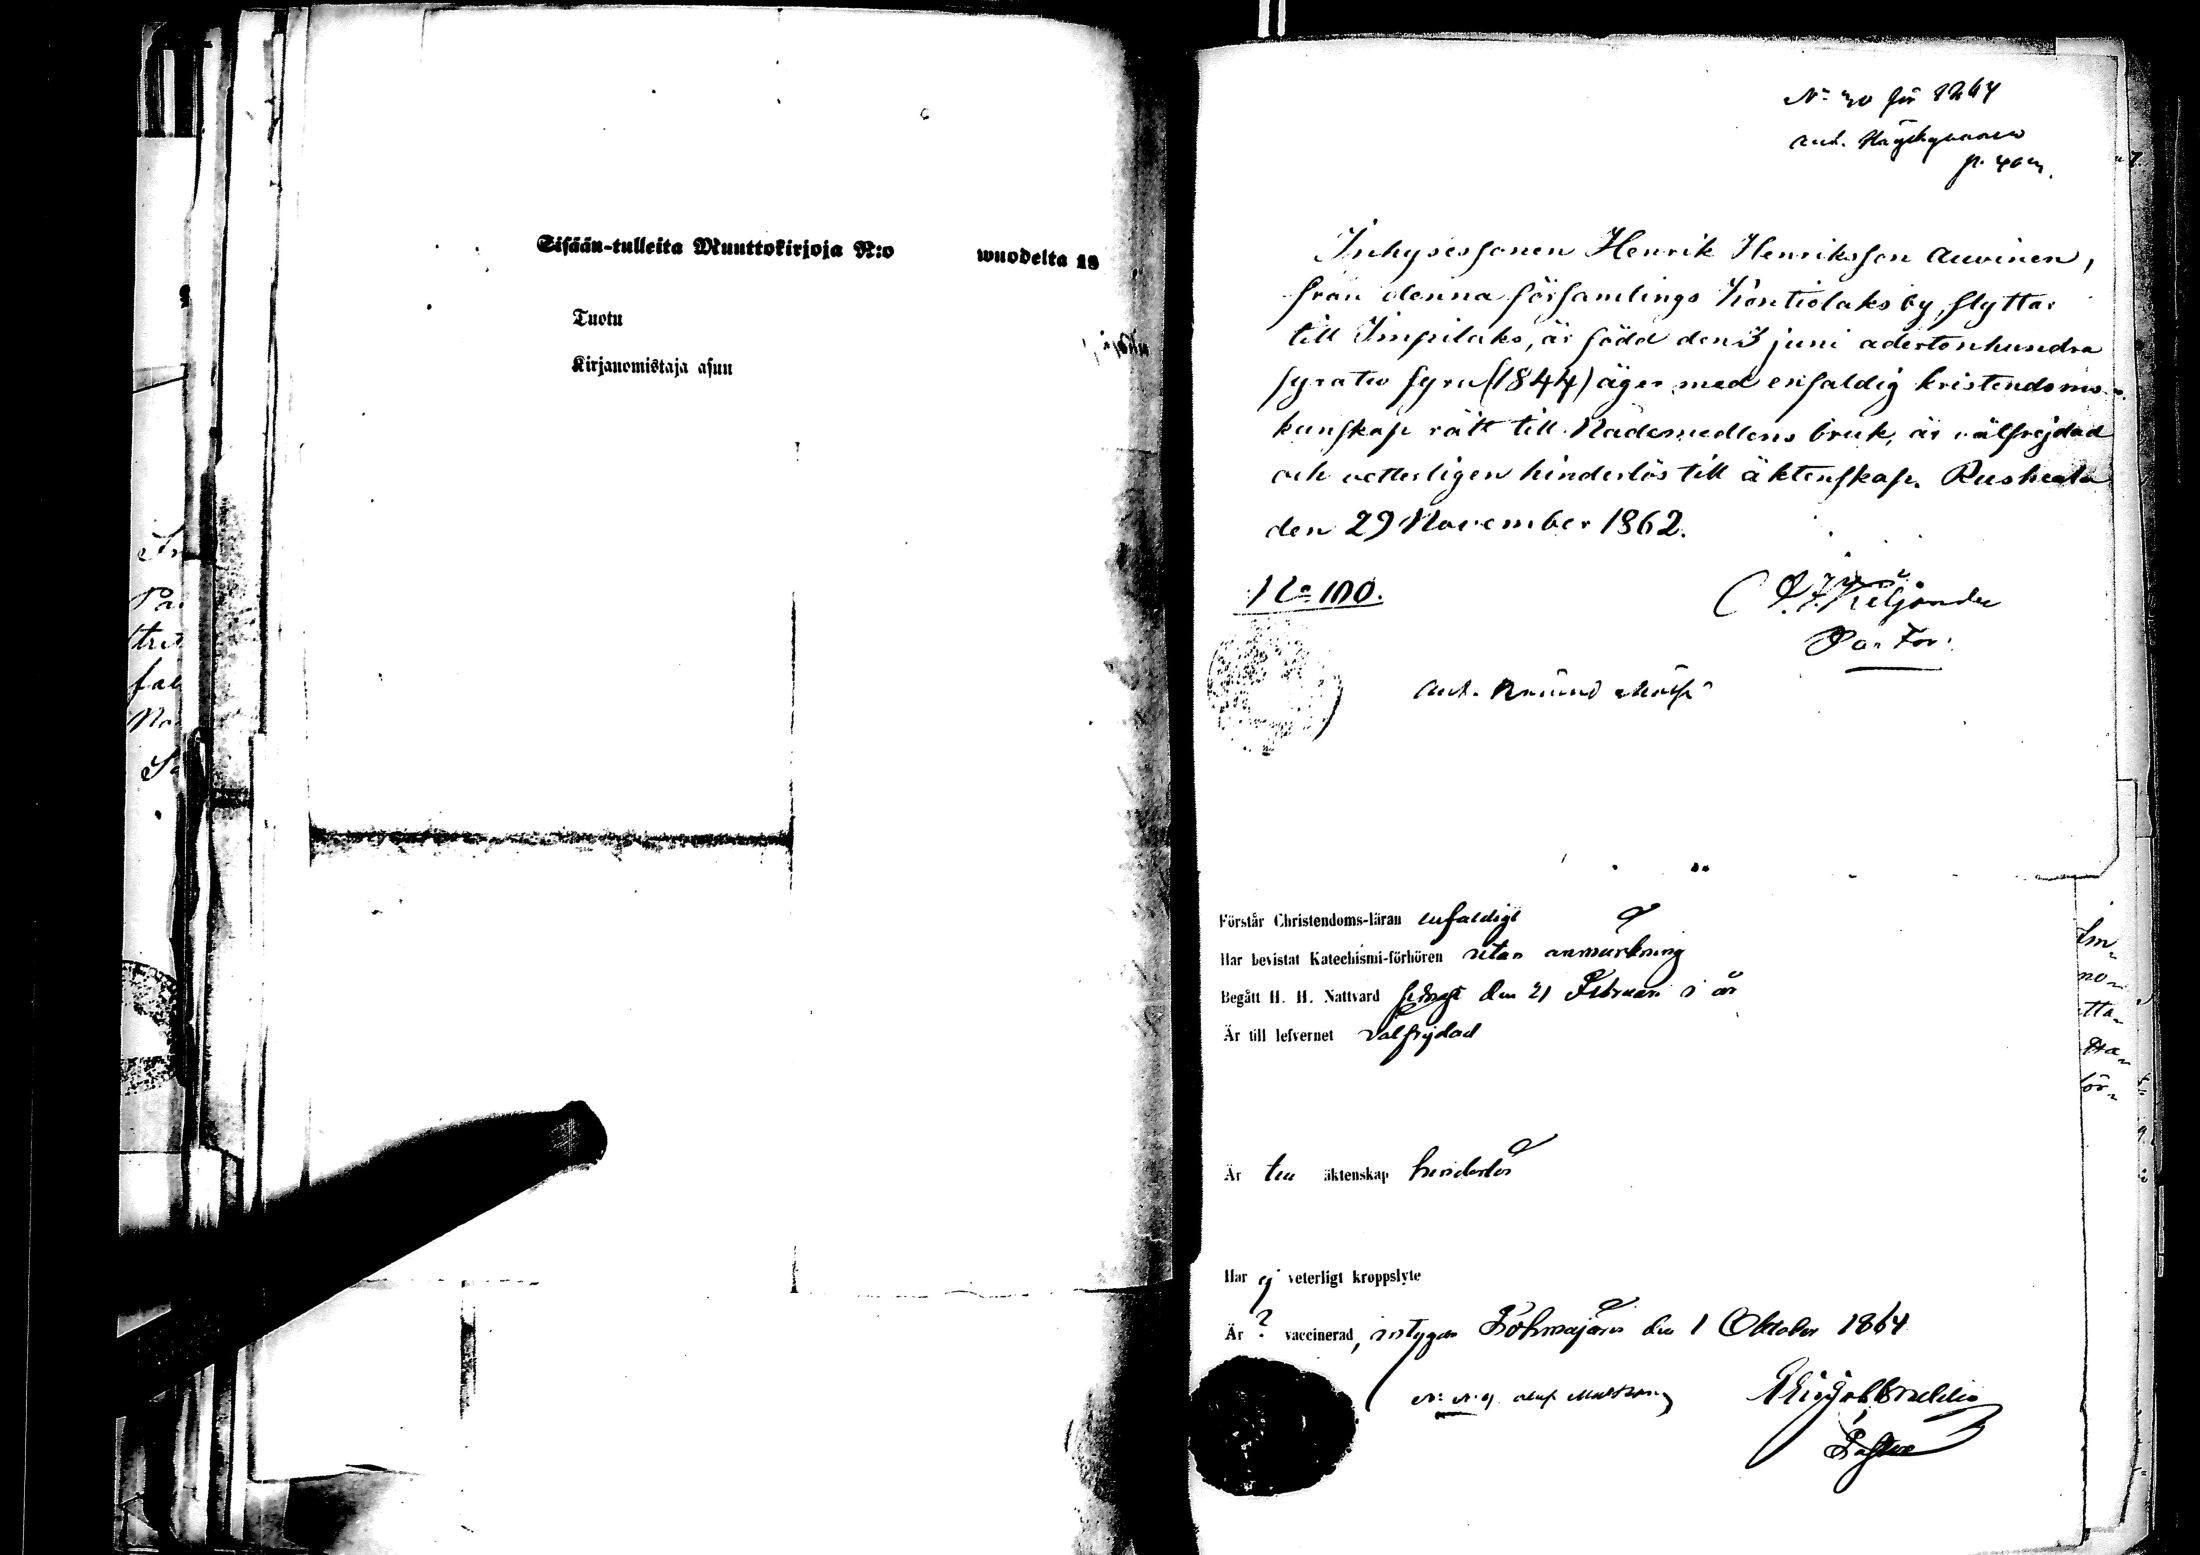 Sisään-tulleita Muuttokirjoja N:o wuodelta 18
Tuotu
Kirjanomistaja asuu
In
tret
fal
No
Sa
N:o 30 för 1864
ant.
Inhysessonen Henrik Henriksson Auvinen,
från denna församlings Kontiolaks by, flyttar
till Impilaks, är född den 3 juni adertonhundra
fyratio fyra (1844) äger med enfaldig kristendoms-
kunskap rätt till Nådemedlens bruk, är välfrejdad
och vetterligen hinderlös till äktenskap. Ruskeala
den 29 November 1862.
No 100.
Pastor.
ant.
Förstår Christendoms-läran enfaldigt
Har bevistat Katechismi-förhören utan anmärkning
Begått H. H. Nattvard den 21 Februari i år
Är till lefvernet välfrejdad
Är till äktenskap hinderlös
Har ej veterligt kroppslyte
Är ? vaccinerad, intygar Tohmajärvi den 1 Oktober 1864
Pastor
no-
tta-
för-